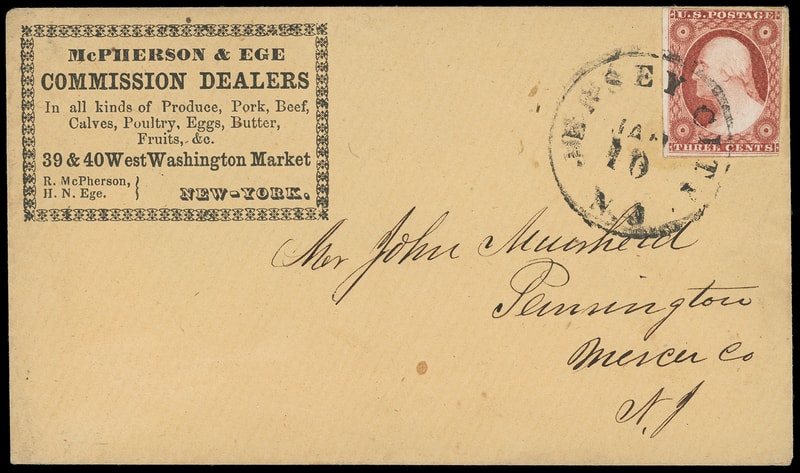 McPHERSON & EGE
COMMISSION DEALERS
In all kinds of Produce, Pork, Beef,
Calves, Poultry, Eggs, Butter,
Fruits, &c.
39 & 40 West Washington Market
R. McPherson,
H. N. Ege.
NEW-YORK.
U.S. POSTAGE
THREE CENTS
JERSEY CITY N.J.
JAN
10
Mr John Muirheid
Pennington
Mercer Co
N. J